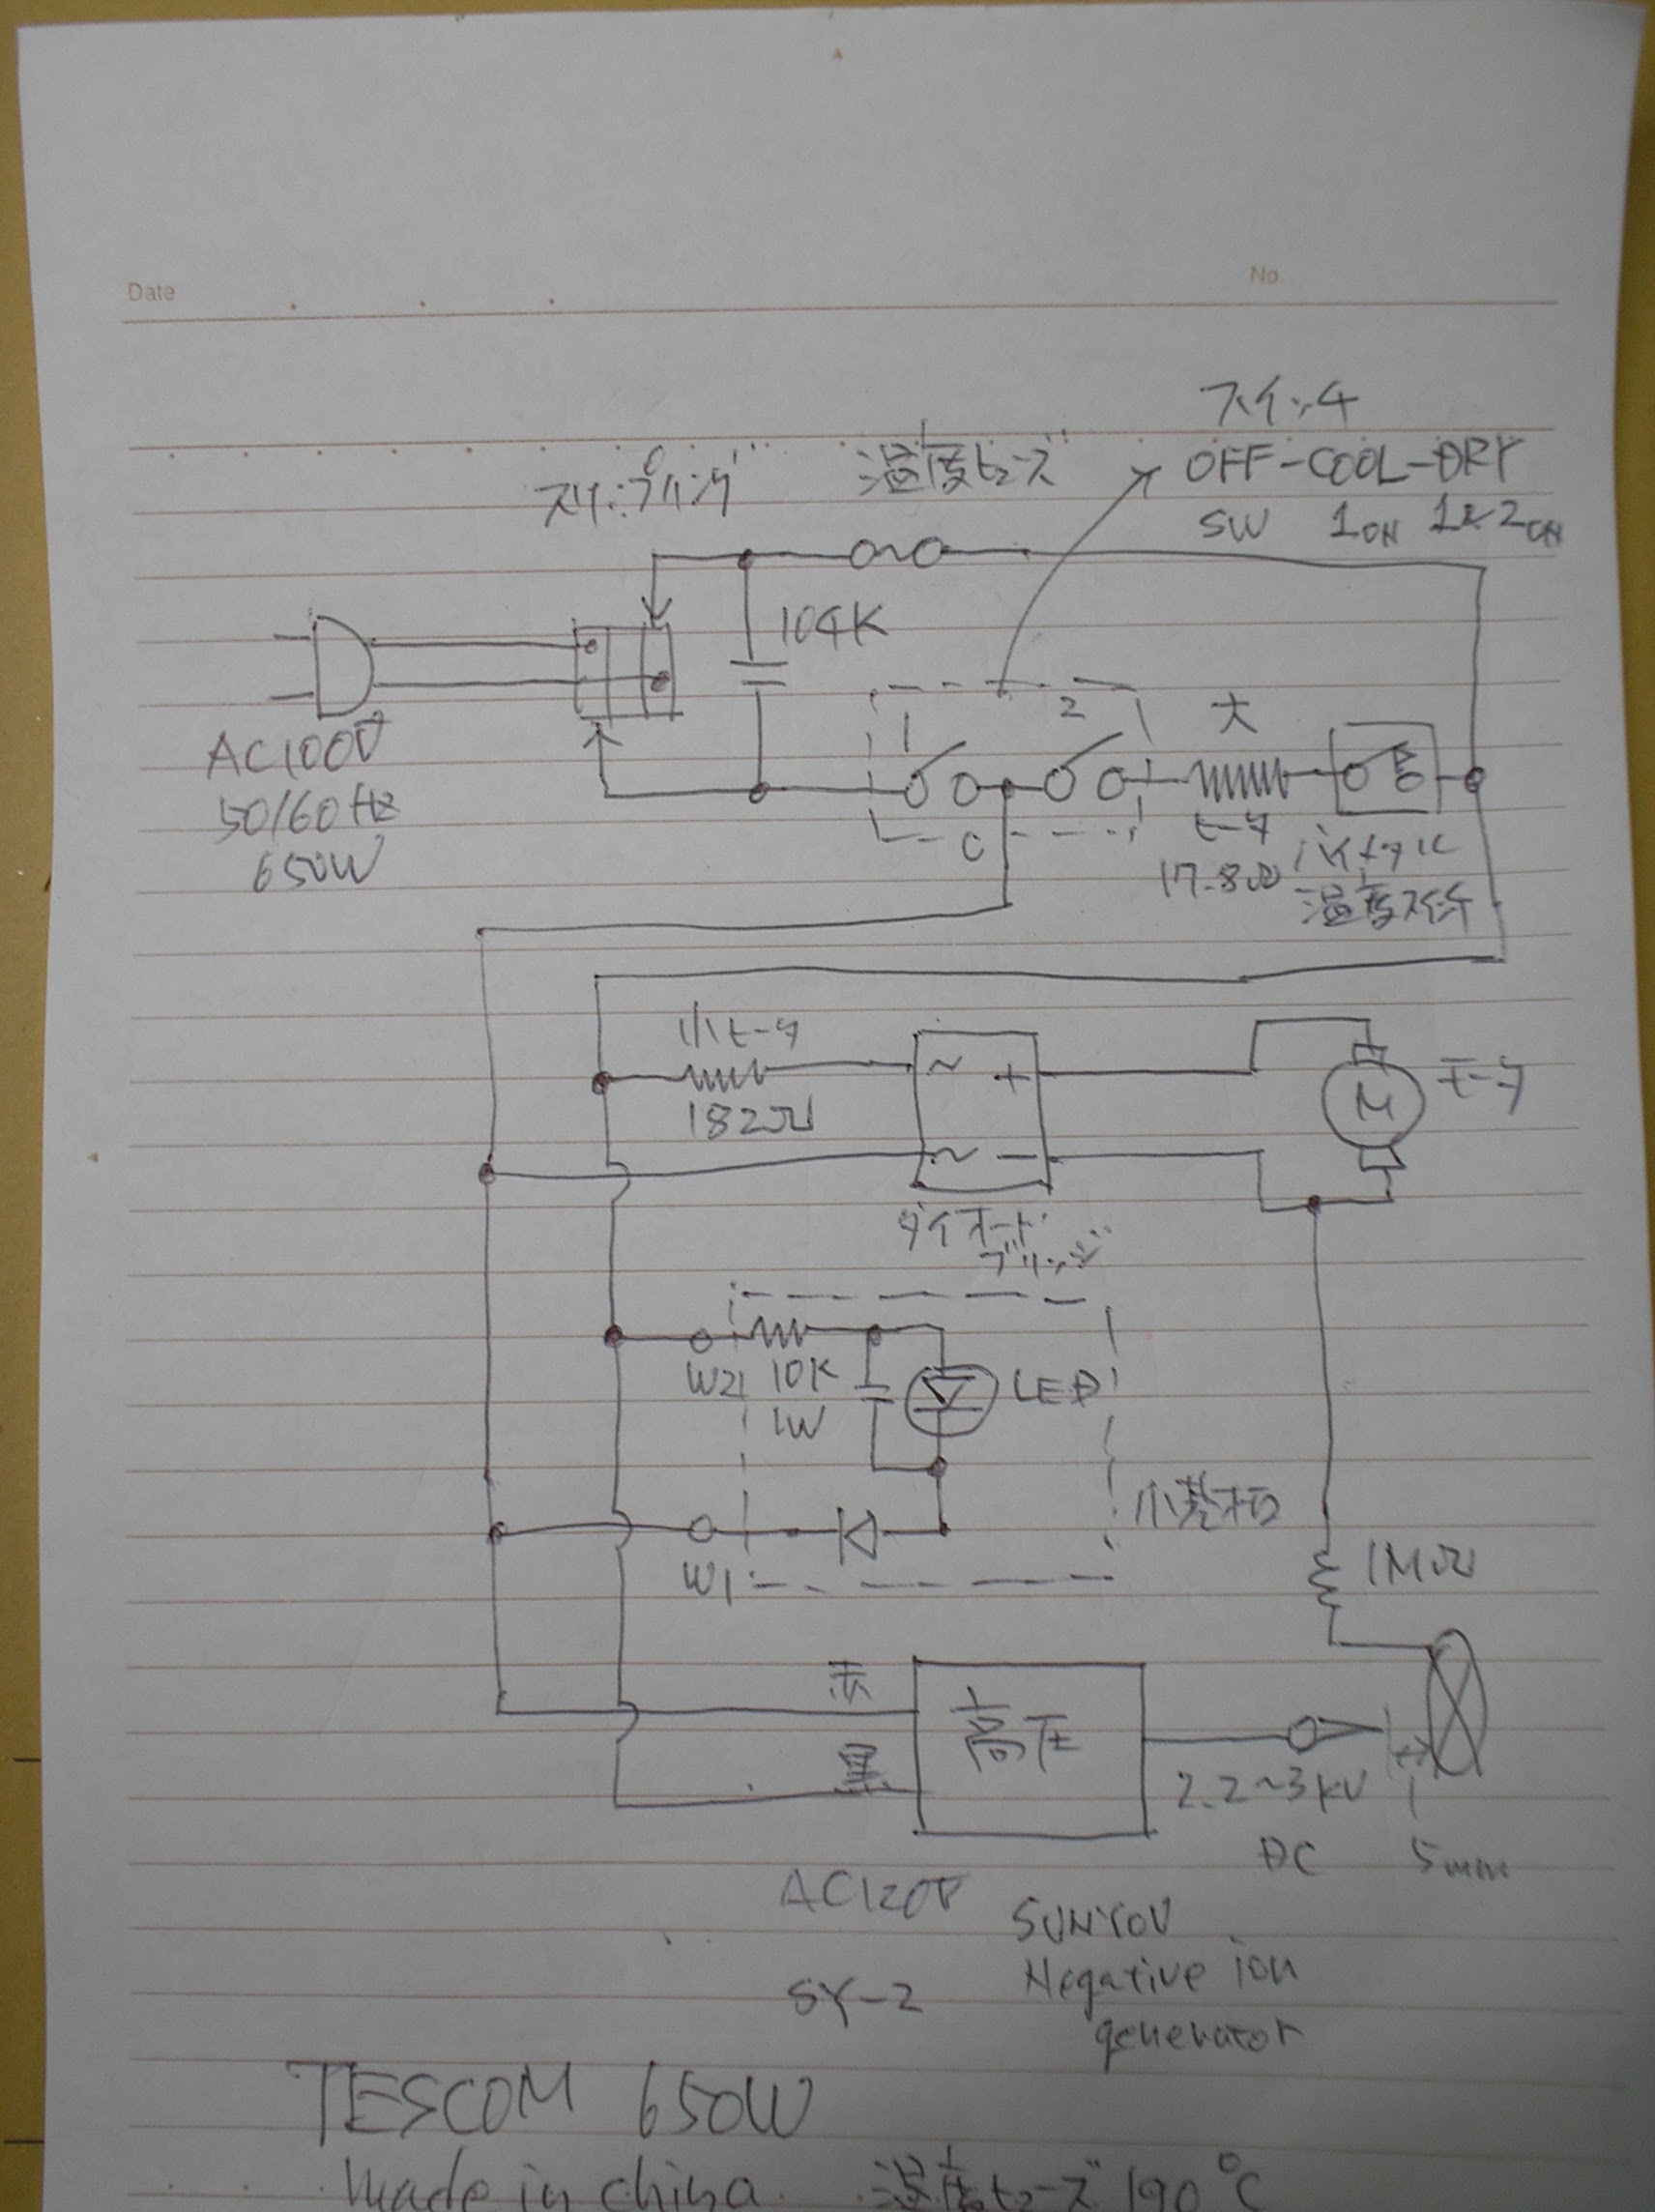 Date
No.
スイッチ
OFF-COOL-DRY
SW 1ON 1&2ON
スリップリング
温度ヒューズ
104K
AC100V
50/60Hz
650W
1
2
C
大
ヒータ
17.8Ω
バイメタル
温度スイッチ
小ヒータ
182Ω
~ +
~ −
ダイオード
ブリッジ
M
モータ
W2
10K
1W
LED
W1
小基板
1MΩ
赤
黒
高圧
2.2~3KV
DC
5mm
AC120V
SUNYOU
Negative ion
generator
SY-2
TESCOM 650W
made in china. 温度ヒューズ 190°C